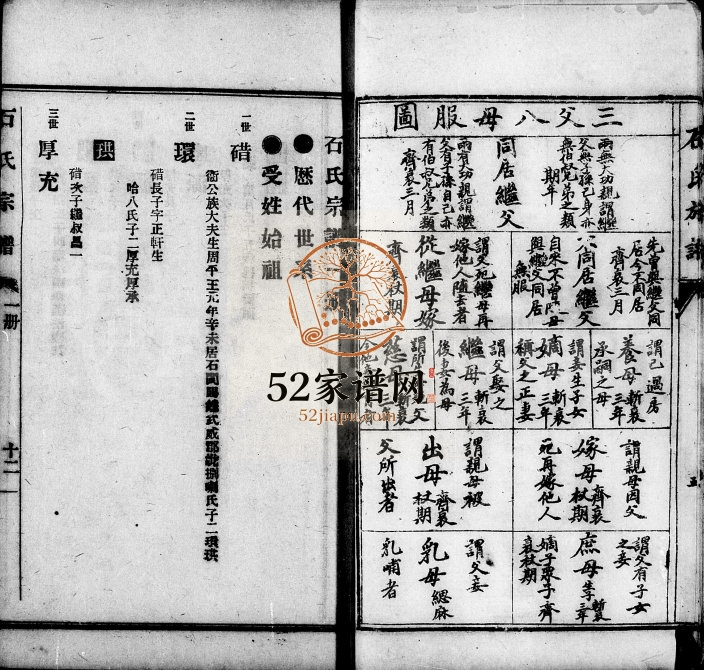 三父八母服圖
同居繼父
兩無大功親謂繼
父無子孫己身亦
無伯叔兄弟之類
期年
兩有大功親謂繼
父有子孫自己亦
有伯叔兄弟之類
齊衰三月
先曾與繼父同
居今不同居
齊衰三月
不同居繼父
自來不曾隨母
與繼父同居
無服
謂父死繼母再
嫁他人隨去者
從繼母嫁
齊衰杖期
謂己過房
養母 斬衰三年
承嗣之母
謂妾生子女
嫡母 斬衰三年
稱父之正妻
謂父娶之
繼母 斬衰三年
後妻為母
慈母
謂親母因父
嫁母 齊衰杖期
死再嫁他人
謂親母被
出母 齊衰杖期
父所出者
謂父有子女
之妾
庶母
嫡子眾子齊
衰杖期
謂父妾
乳母 緦麻
乳哺者
石氏族譜
五
石氏宗譜
歷代世系
受姓始祖
一世
碏
衞公族大夫生周平王元年辛未居石
氏子二環珙
二世
環
碏長子字正軒生
哈八氏子二厚充厚承
珙
碏次子
三世
厚充
石氏宗譜
一册
十二
52家谱网
52jiapu.com